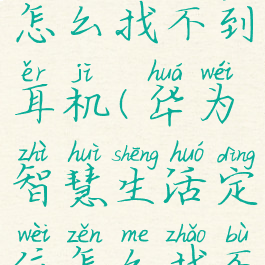 怎么找不到
ěr jī huá wéi
耳机(华为
zhì huì shēng huó dìng
智慧生活定
wèi zěn me zhǎo bù
位怎么找不